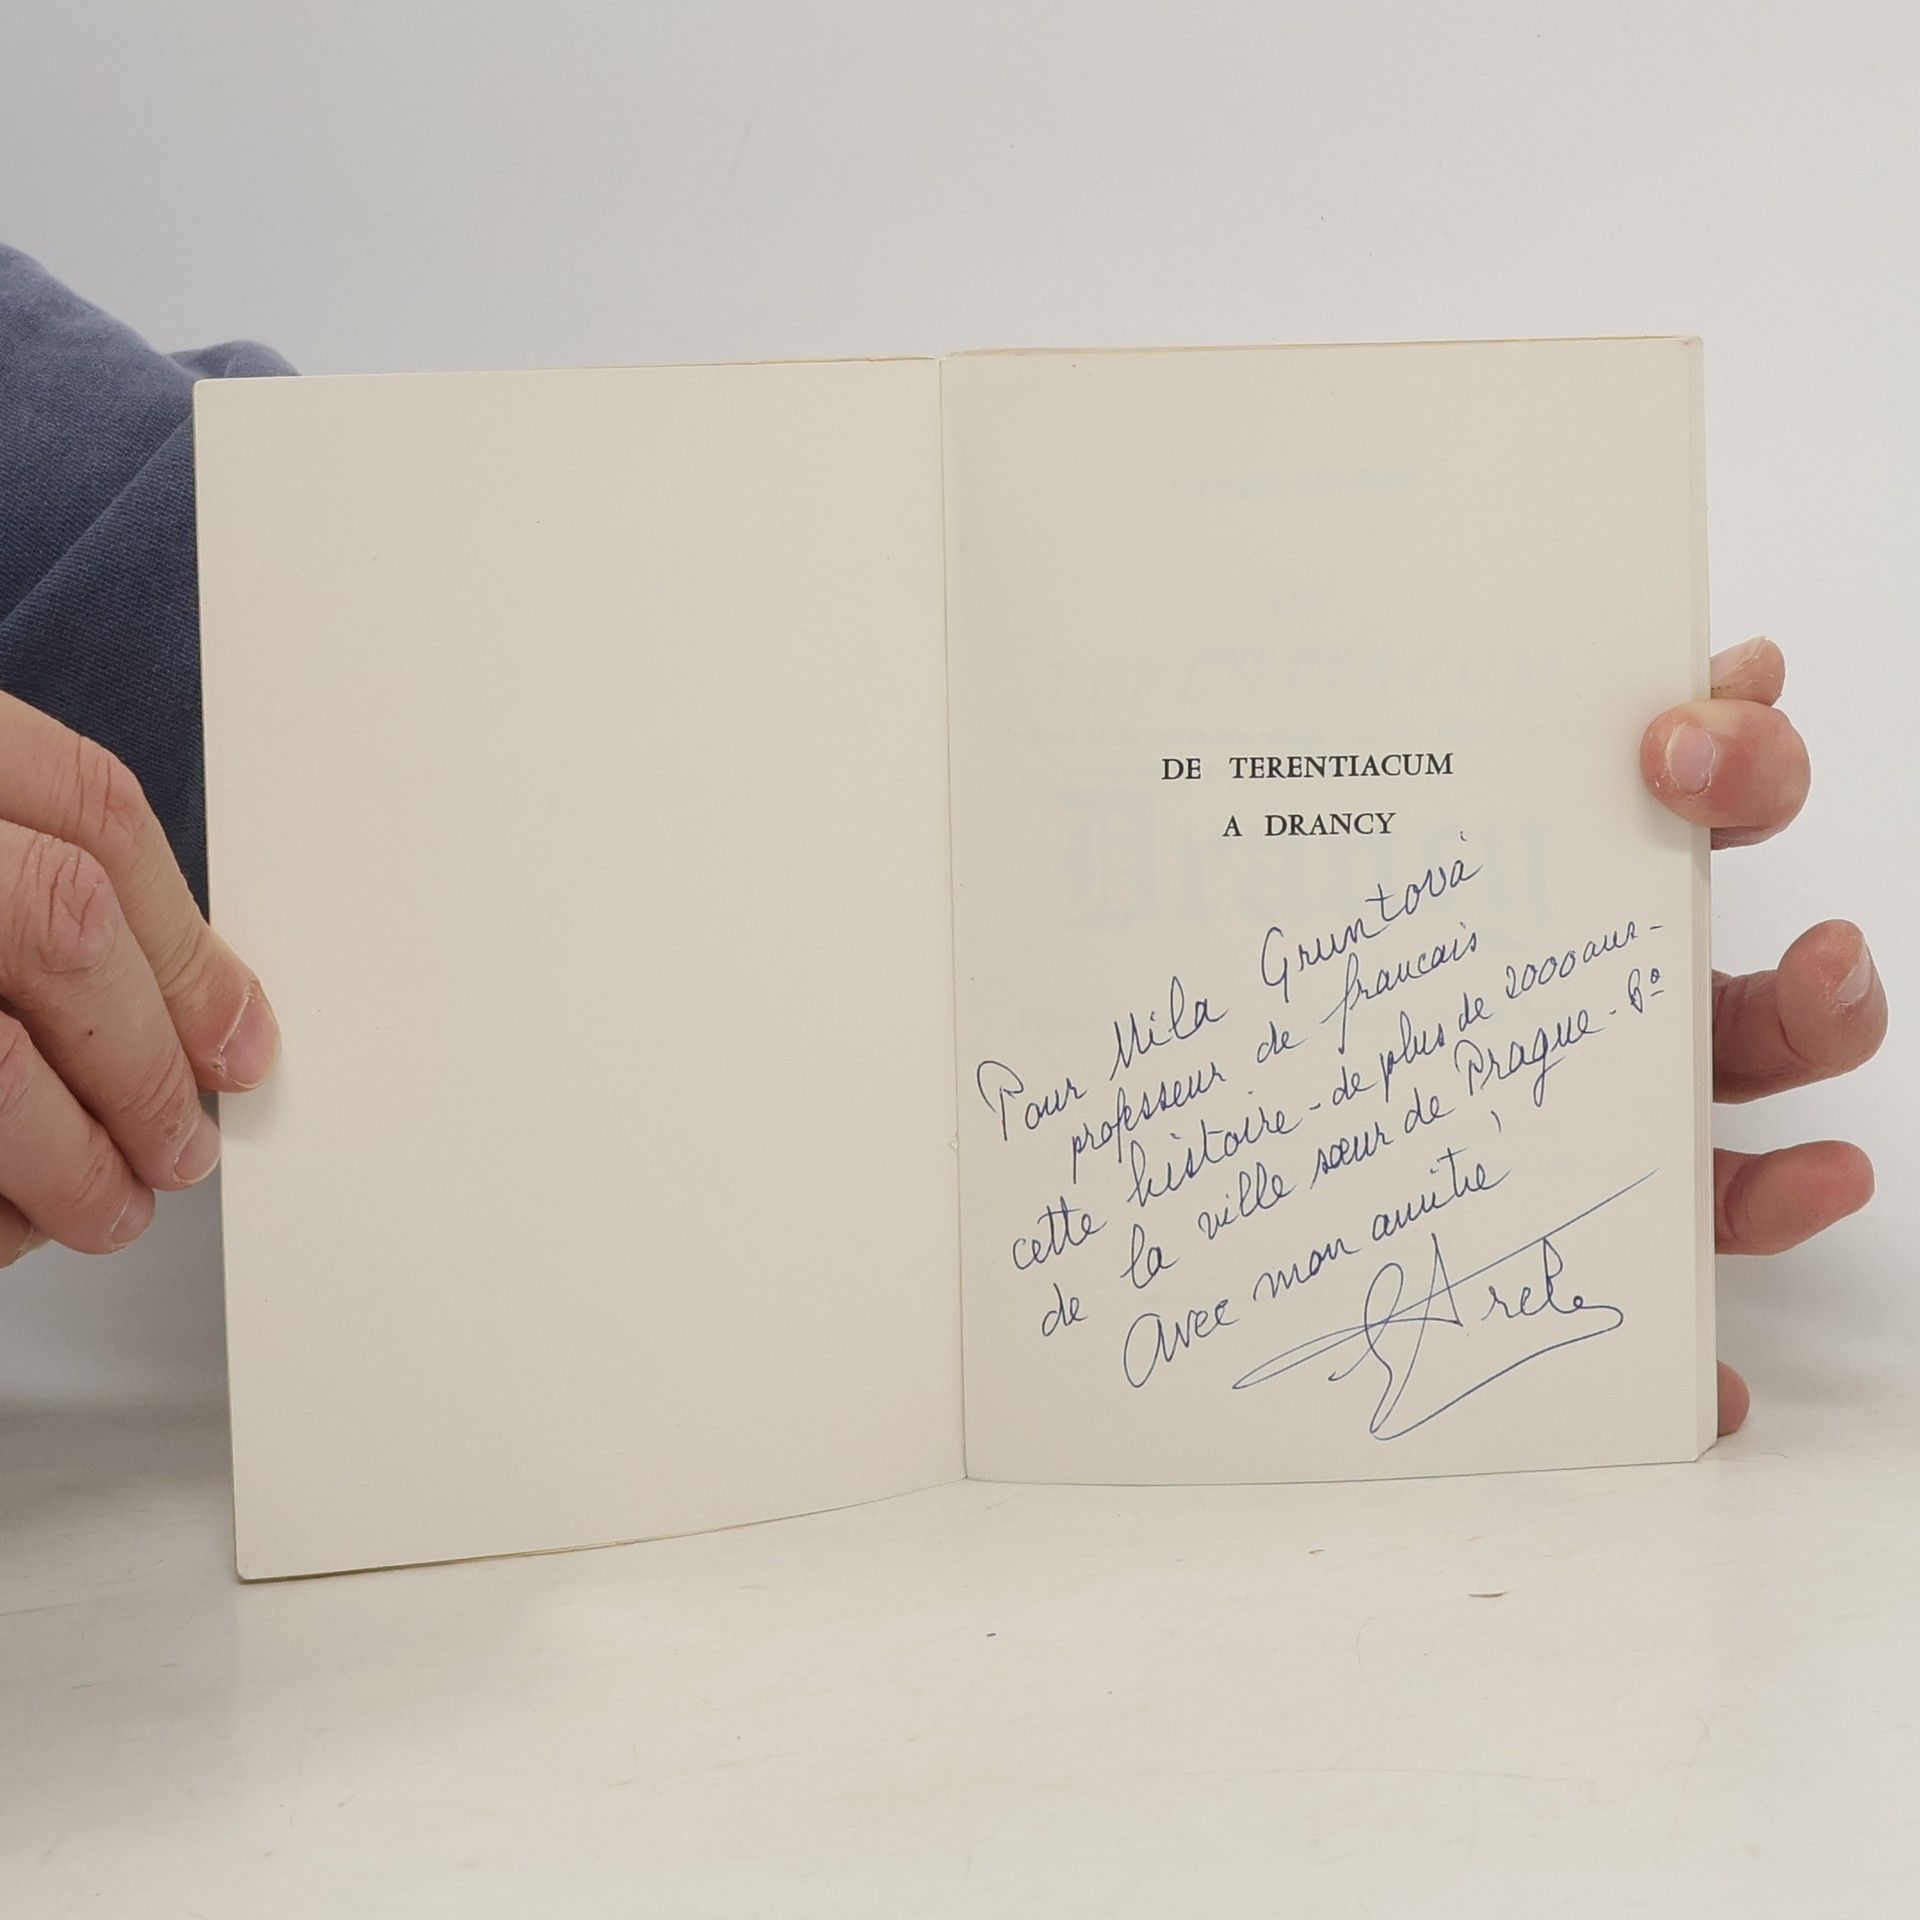 DE TERENTIACUM
A DRANCY
Pour Mila Gruntová
professeur de francais
cette histoire - de plus de 2000 ans -
de la ville sœur de Prague - 6º
Avec mon amitié,